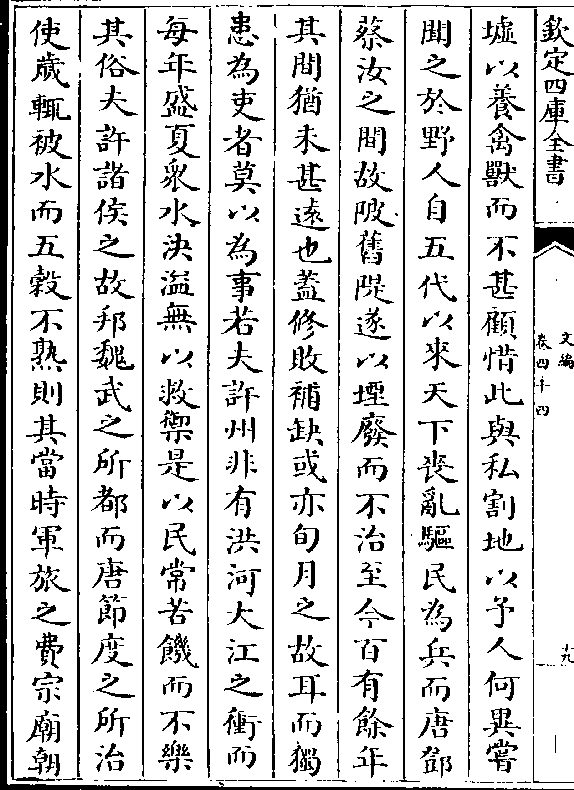 欽定四庫全書
文編
卷四十四
十九
墟以養禽獸而不甚顧惜此與私割地以予人何異嘗
聞之於野人自五代以來天下喪亂驅民為兵而唐鄧
蔡汝之間故陂舊隄遂以堙廢而不治至今百有餘年
其間猶未甚遠也蓋修敗補缺或亦旬月之故耳而獨
患為吏者莫以為事若夫許州非有洪河大江之衝而
每年盛夏衆水決溢無以救禦是以民常苦饑而不樂
其俗夫許諸侯之故邦魏武之所都而唐節度之所治
使歲輒被水而五穀不熟則其當時軍旅之費宗廟朝